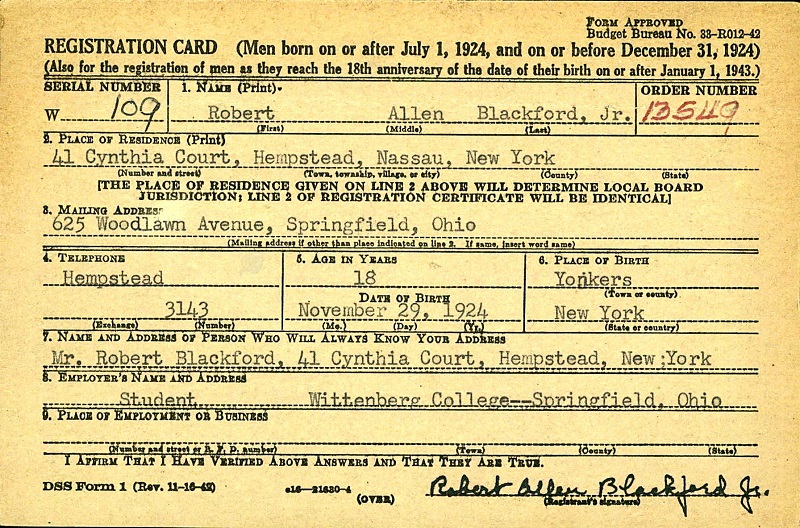 FORM APPROVED
Budget Bureau No. 33-R012-42
REGISTRATION CARD (Men born on or after July 1, 1924, and on or before December 31, 1924)
(Also for the registration of men as they reach the 18th anniversary of the date of their birth on or after January 1, 1943.)
SERIAL NUMBER 1. NAME (Print) ORDER NUMBER
W 109 Robert Allen Blackford, Jr. 13549
(First) (Middle) (Last)
2. PLACE OF RESIDENCE (Print)
41 Cynthia Court, Hempstead, Nassau, New York
(Number and street) (Town, township, village, or city) (County) (State)
[THE PLACE OF RESIDENCE GIVEN ON LINE 2 ABOVE WILL DETERMINE LOCAL BOARD
JURISDICTION; LINE 2 OF REGISTRATION CERTIFICATE WILL BE IDENTICAL]
3. MAILING ADDRESS
625 Woodlawn Avenue, Springfield, Ohio
(Mailing address if other than place indicated on line 2. If same, insert word same)
4. TELEPHONE 5. AGE IN YEARS 6. PLACE OF BIRTH
Hempstead 18 Yonkers
DATE OF BIRTH (Town or county)
3143 November 29, 1924 New York
(Exchange) (Number) (Mo.) (Day) (Yr.) (State or country)
7. NAME AND ADDRESS OF PERSON WHO WILL ALWAYS KNOW YOUR ADDRESS
Mr. Robert Blackford, 41 Cynthia Court, Hempstead, New York
8. EMPLOYER'S NAME AND ADDRESS
Student Wittenberg College--Springfield, Ohio
9. PLACE OF EMPLOYMENT OR BUSINESS
(Number and street or R. F. D. number) (Town) (County) (State)
I AFFIRM THAT I HAVE VERIFIED ABOVE ANSWERS AND THAT THEY ARE TRUE.
DSS Form 1 (Rev. 11-16-42) c16-21630-4 (OVER) Robert Allen Blackford Jr.
(Registrant's signature)